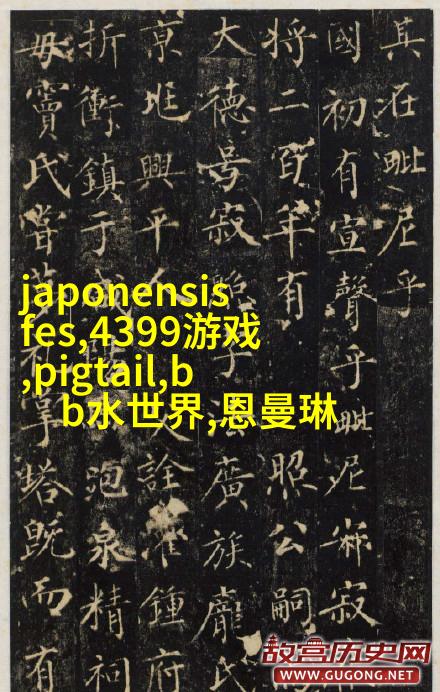 其在毗尼乎
國初有宣聲乎毗尼寂
將二百年有照公嗣
大德号寂法廣族龐氏
京兆興平人詮灌鍾府
折衝鎮于泡泉精祠
毋竇氏嘗夢掌塔既而有
japonensis
fes,4399游戏
,pigtail,b
b水世界,恩曼琳
故宫历史网
WWW.GUGONG.NET